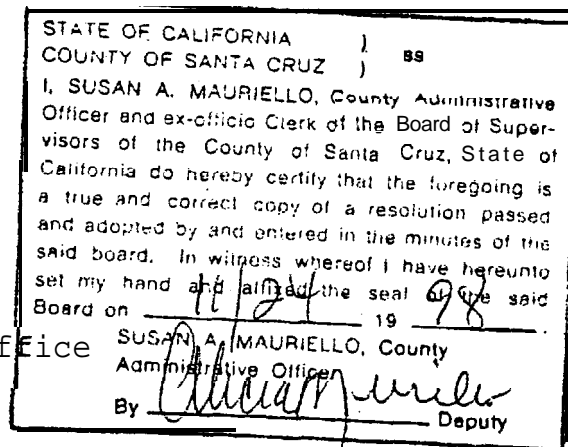 STATE OF CALIFORNIA )
COUNTY OF SANTA CRUZ ) ss
I, SUSAN A. MAURIELLO, County Administrative
Officer and ex-officio Clerk of the Board of Super-
visors of the County of Santa Cruz, State of
California do hereby certify that the foregoing is
a true and correct copy of a resolution passed
and adopted by and entered in the minutes of the
said board. In witness whereof I have hereunto
set my hand and affixed the seal of the said
Board on 11/24 19 98.
ffice
SUSAN A. MAURIELLO, County
Administrative Officer
By Deputy